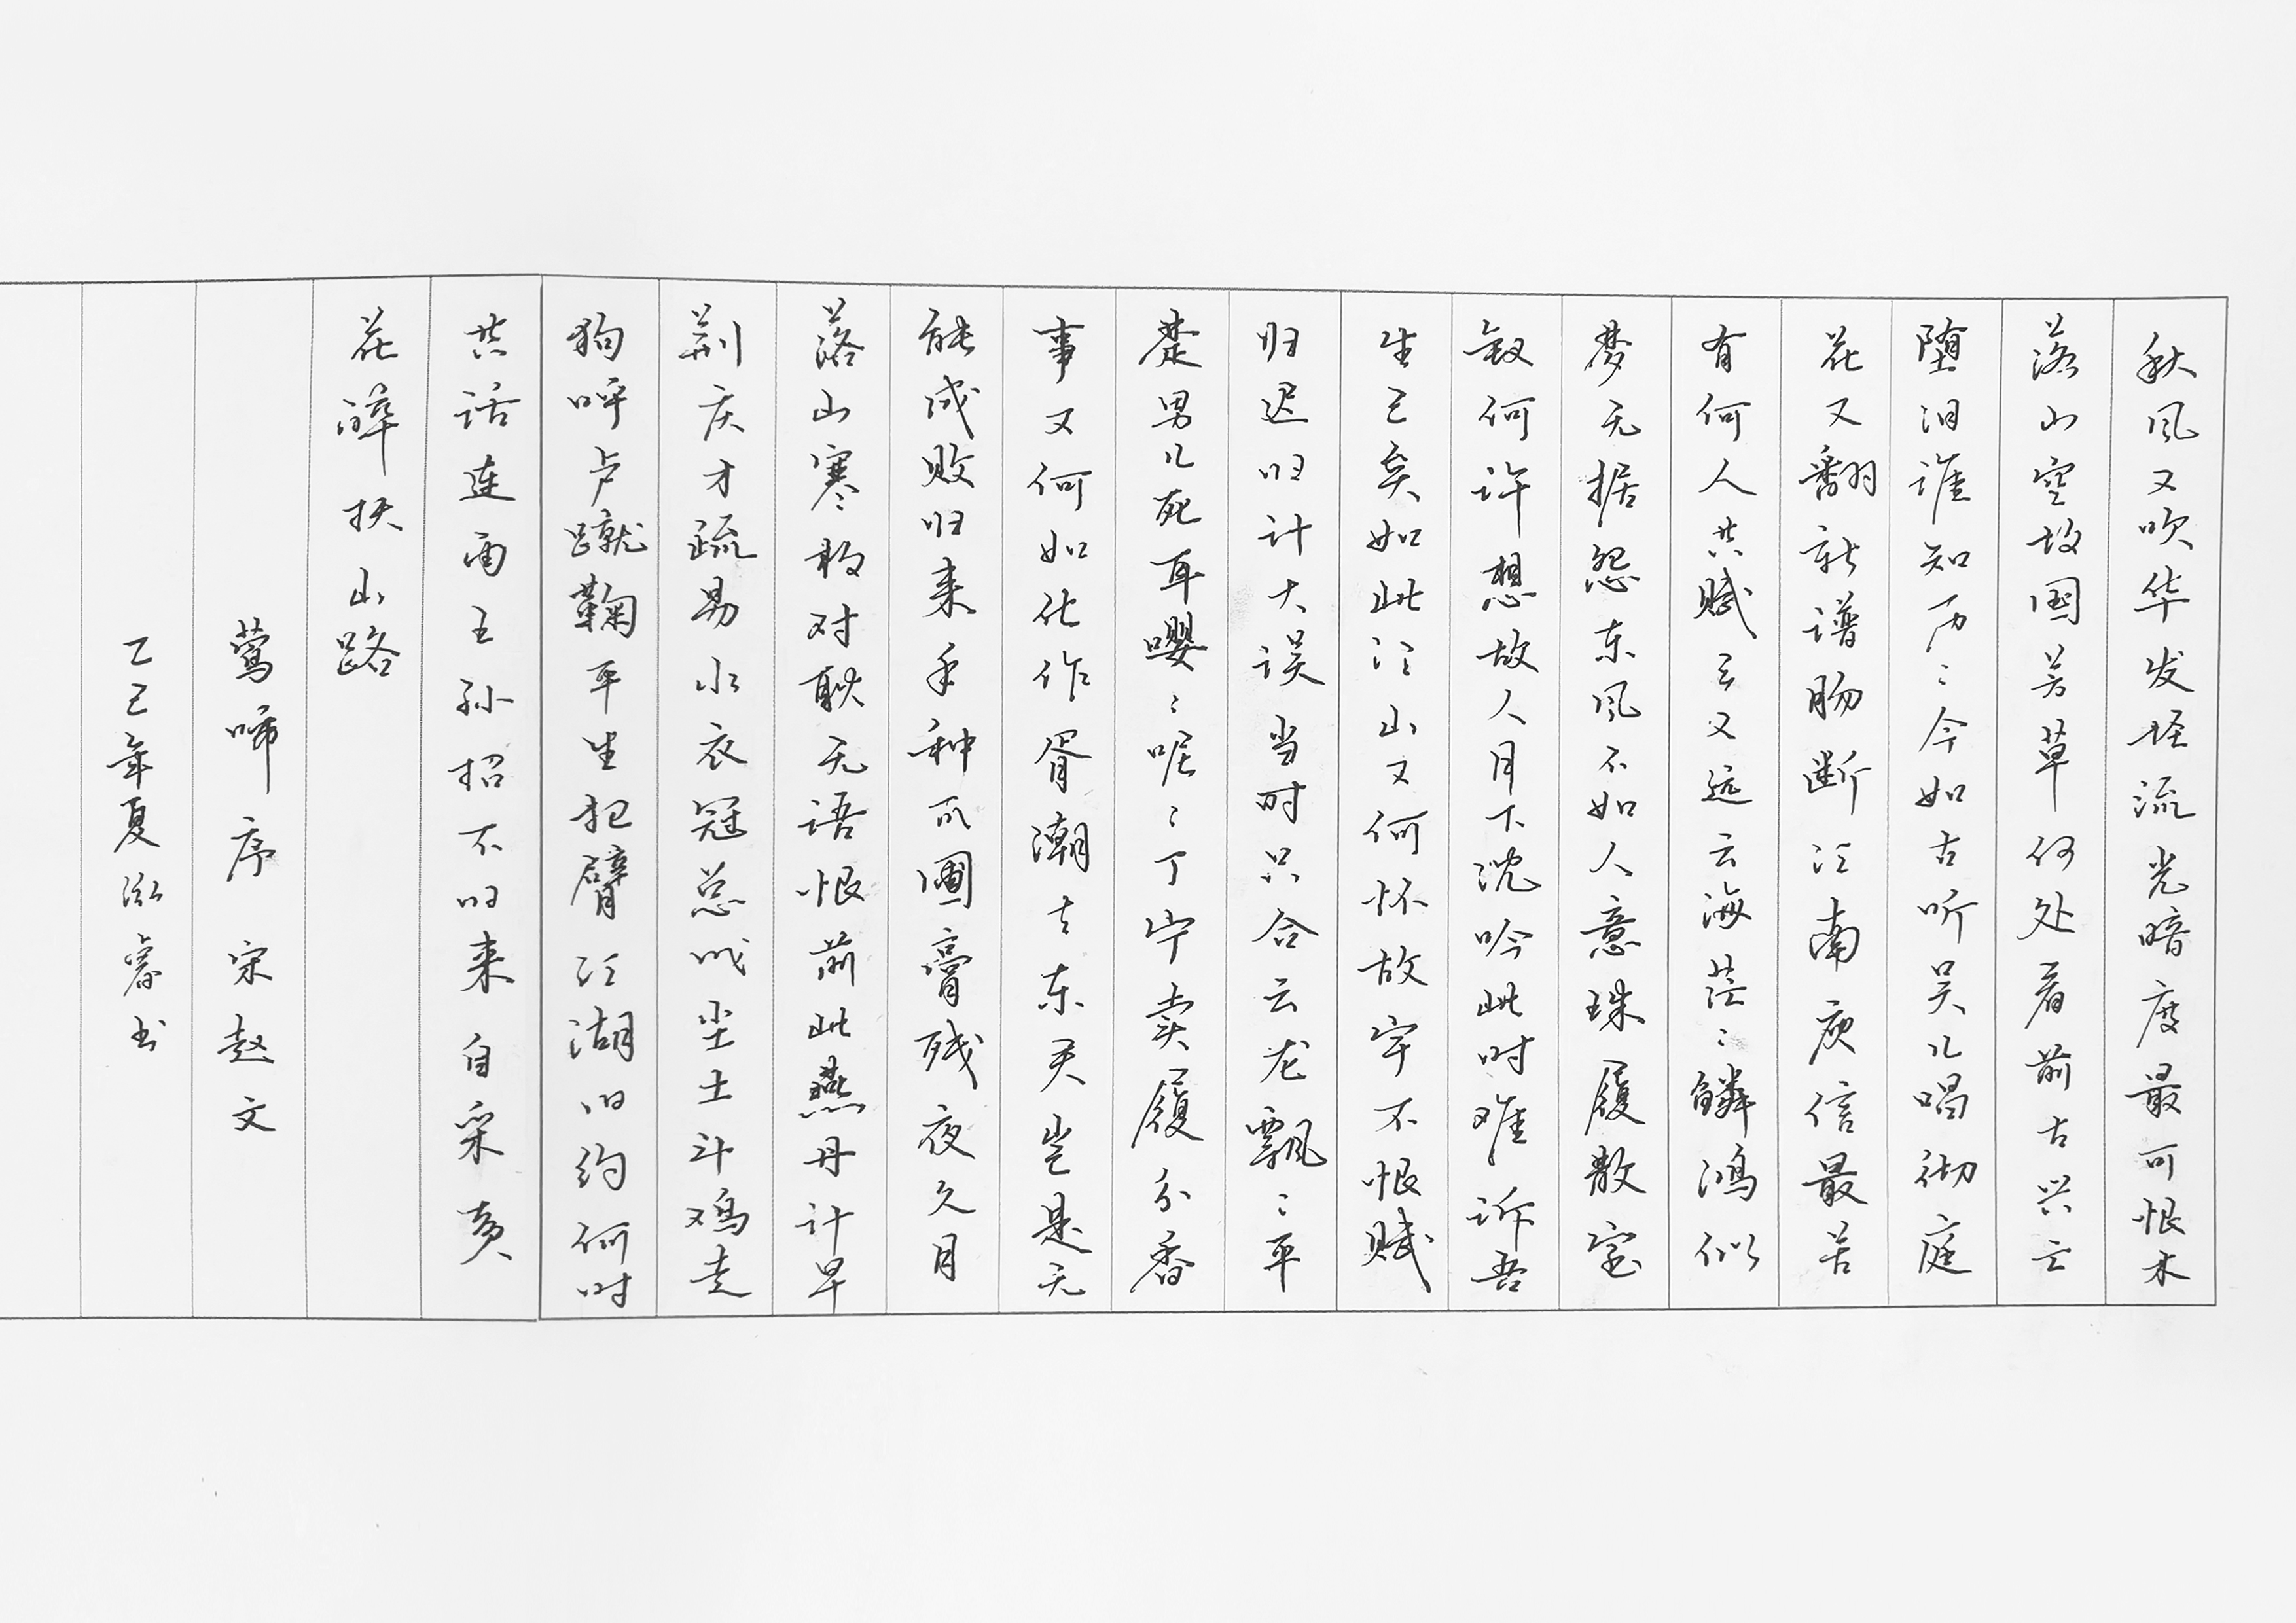 秋风又吹华发怪流光暗度最可恨木
落山空故国芳草何处看前古兴亡
堕泪谁知历〻今如古听吴儿唱彻庭
花又翻新谱肠断江南庾信最苦
有何人共赋云又远云海茫〻鳞鸿似
梦无据怨东风不如人意珠履散宝
钗何许想故人月下沈吟此时难诉吾
生已矣如此江山又何怀故宇不恨赋
归迟归计大误当时只合云龙飘〻平
楚男儿死耳嘤〻呢〻丁宁卖履分香
事又何如化作胥潮去东君岂是无
能成败归来手种瓜圃膏残夜久月
落山寒相对耿无语恨前此燕丹计早
荆庆才疏易水衣冠总成尘土斗鸡走
狗呼卢蹴鞠平生把臂江湖旧约何时
共话连雨王孙招不归来自采黄
花醉扶山路
莺啼序 宋 赵文
乙巳年夏泓睿书